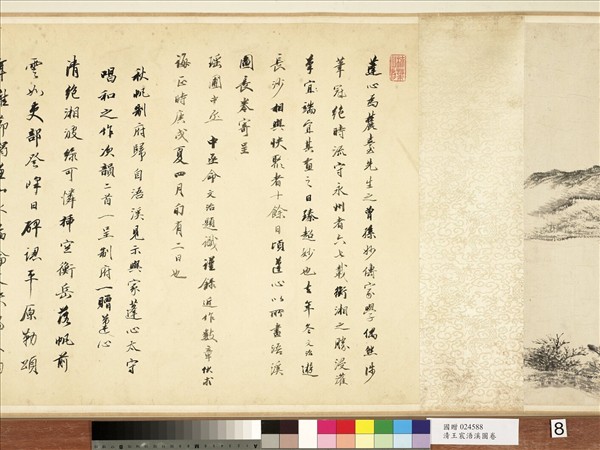 蓬心為麓臺先生之曾孫妙傳家學偶然涉
筆冠絕時流守永州者六七載衡湘之勝浸灌
端宜其畫之日臻超妙也去年冬文治遊
長沙相與快聚者十餘日頃蓬心以所畫浯溪
圖長卷寄呈
瑤圃中丞中丞命文治題識謹錄近作數章伏求
誨正時庚戌夏四月旬有二日也
秋帆制府歸自浯溪見示與家蓬心太守
唱和之作次韻二首一呈制府一贈蓬心
清絕湘波綠可憐插空衡岳落帆前
雲如吏部登峰日碑認平原勒頌
國贈 024588
清王宸浯溪圖卷
8